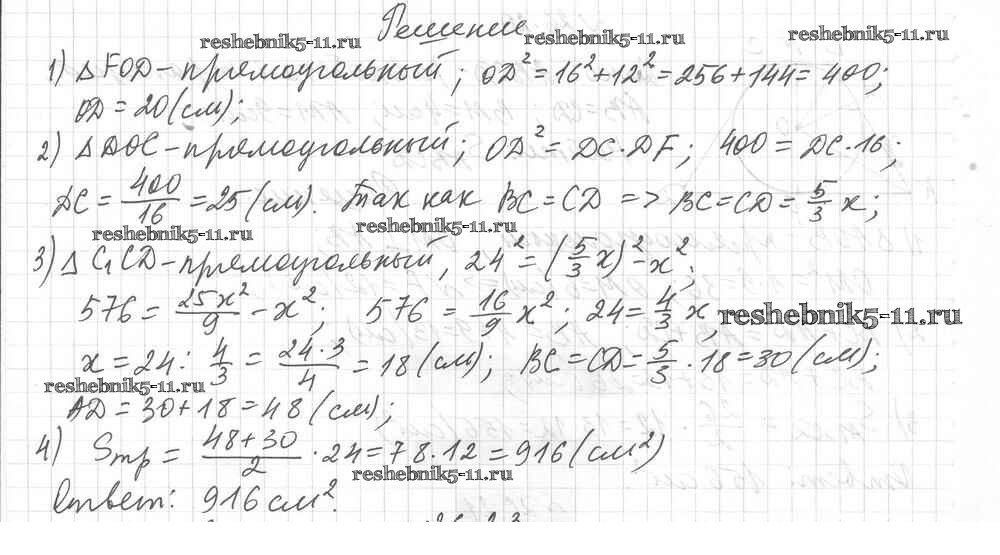 Решение
reshebnik5-11.ru reshebnik5-11.ru reshebnik5-11.ru
1) △FOD - прямоугольный; OD² = 16² + 12² = 256 + 144 = 400;
OD = 20 (см);
2) △DOC - прямоугольный; OD² = DC · DF; 400 = DC · 16;
DC = 400/16 = 25 (см). Так как BC = CD => BC = CD = 5/3 x;
reshebnik5-11.ru reshebnik5-11.ru
3) △C₁CD - прямоугольный, 24² = (5/3 x)² - x²;
576 = 25x²/9 - x²; 576 = 16/9 x²; 24 = 4/3 x,
reshebnik5-11.ru
x = 24 : 4/3 = 24·3/4 = 18 (см); BC = CD = 5/3 · 18 = 30 (см);
reshebnik5-11.ru
AD = 30 + 18 = 48 (см);
4) Sтр = 48+30/2 · 24 = 78 · 12 = 916 (см²)
reshebnik5-11.ru
Ответ: 916 см².